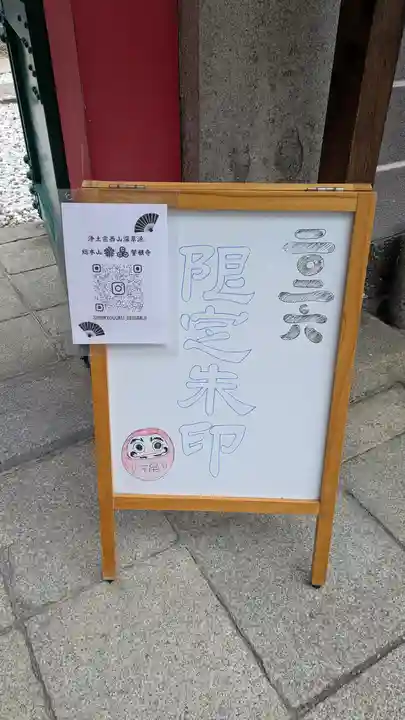 二〇二六
限定朱印
福
浄土宗西山深草派
総本山 誓願寺
SHINKYOGOKU SEIGANJI